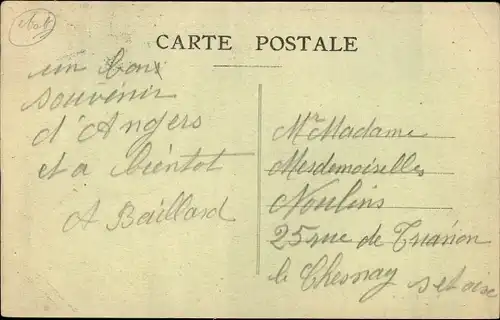 CARTE POSTALE
un bon
souvenir
d'Angers
et a bientot
A Baillard
Mr Madame
Mesdemoiselles
Noulins
25 rue de Trianon
le Chesnay s et oise